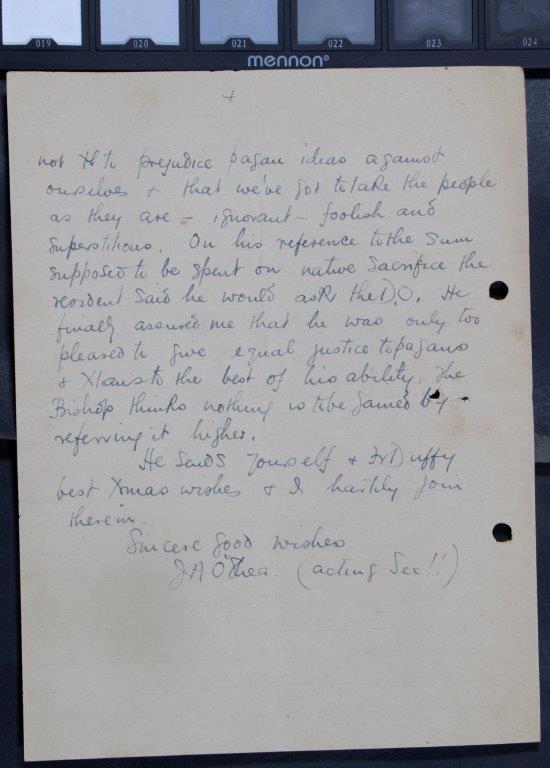 019 020 021 022 023 024
mennon®
4
not to prejudice pagan ideas against
ourselves & that we've got to take the people
as they are – ignorant – foolish and
superstitious. On his reference to the sum
supposed to be spent on native sacrifice the
resident said he would ask the D.O. He
finally assured me that he was only too
pleased to give equal justice to pagans
& Xtians to the best of his ability. The
Bishop thinks nothing is to be gained by
referring it higher.
He sends yourself & Fr Duffy
best Xmas wishes & I hartily join
therein.
Sincere good wishes
J A O'Shea. (acting Sec!!)